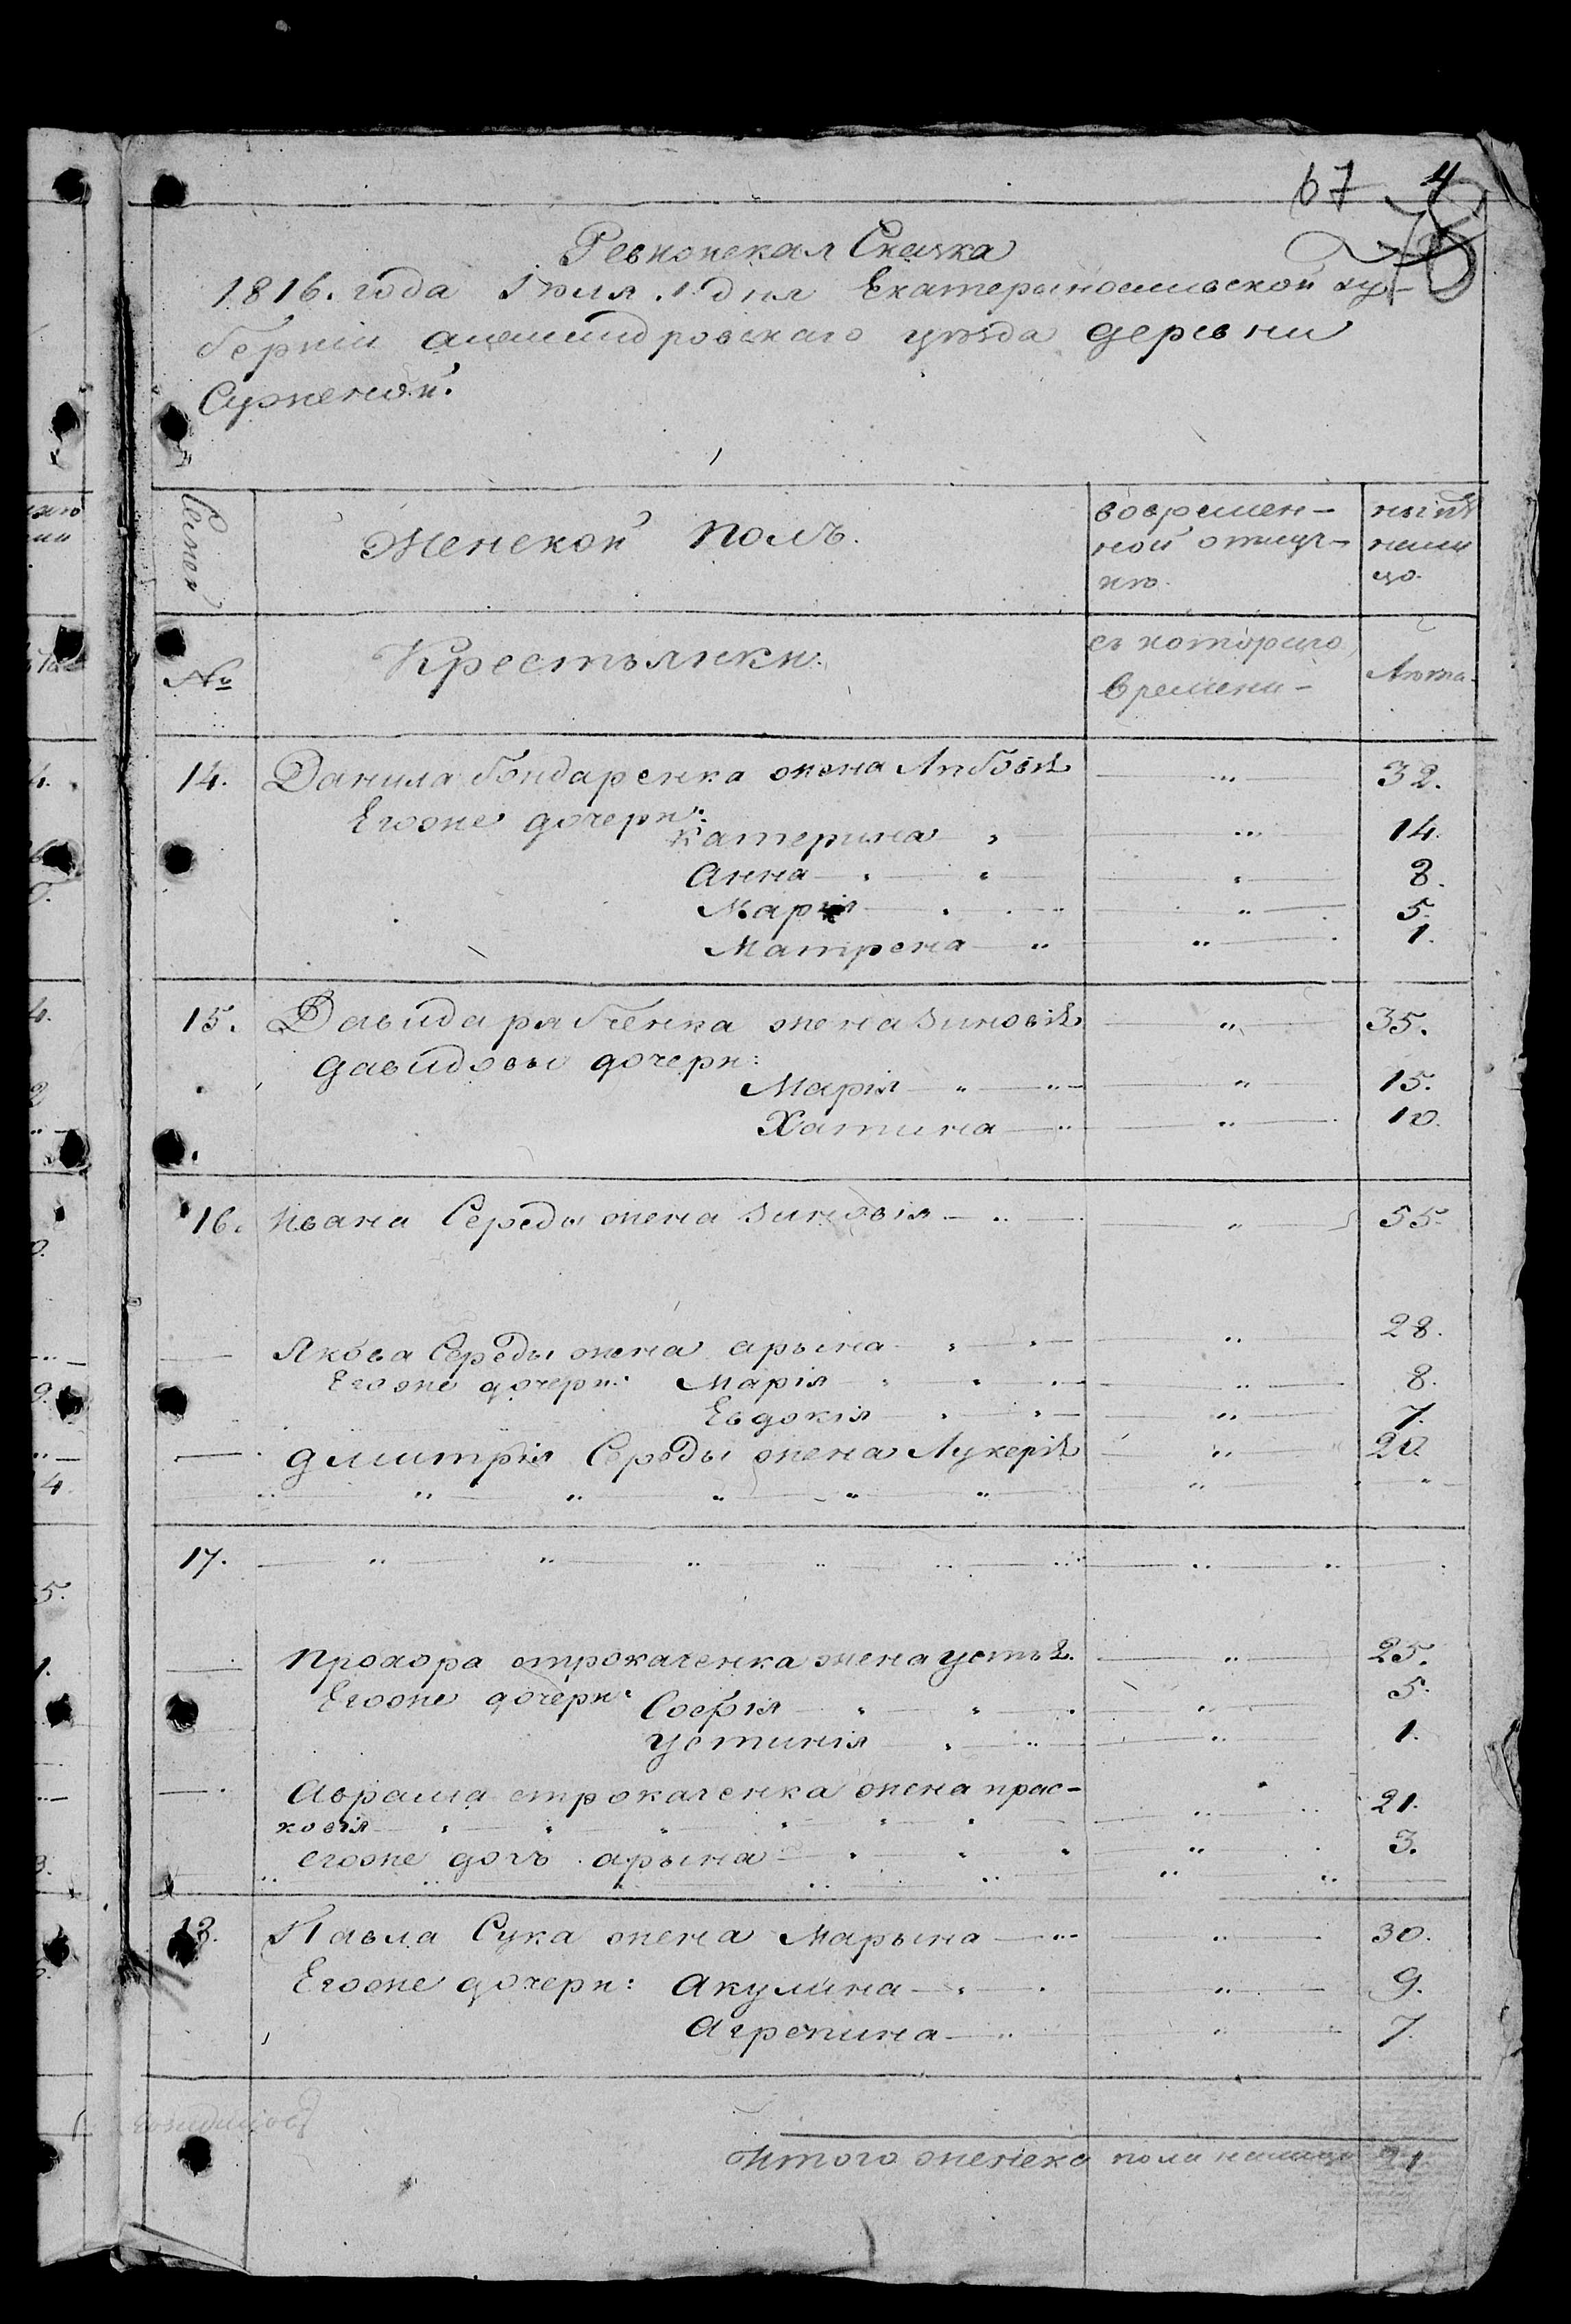 67 4
Ревизская Сказка
1816. года Июля 1 дня Екатеринославской гу-
бернии александровскаго уѣзда деревни
Суженой.
Семьи
Женской полъ.
вовремен-
ной отлуч-
кѣ.
нынѣ
нали
цо.
№
Крестьянки:
съ котораго
времени
Лѣта
14. Данила бондаренка жена Любовѣ " 32.
Егоже дочери:
катерина " 14.
анна " 8.
Марія " 5.
Матрена " 1.
15. Давида рябченка жена зиновія " 35.
давидовы дочери:
Марія " 15.
Хатина " 10.
16. Ивана Середы жена зиновія " 55.
Якова Середы жена арына " 28.
Егоже дочери: Марія " 8.
Евдокія " 7.
дмитрія Середы жена Лукерія " 20
17.
прохора строкаченка жена устя. " 25.
Егоже дочери: Софія " 5.
устинія " 1.
аврама строкаченка жена прас-
ковія " 21.
егоже дочь арына " 3.
18. Павла Сука жена Марына " 30.
Егоже дочери: акулина " 9.
агрепина " 7.
Итого женска пола налицо 21